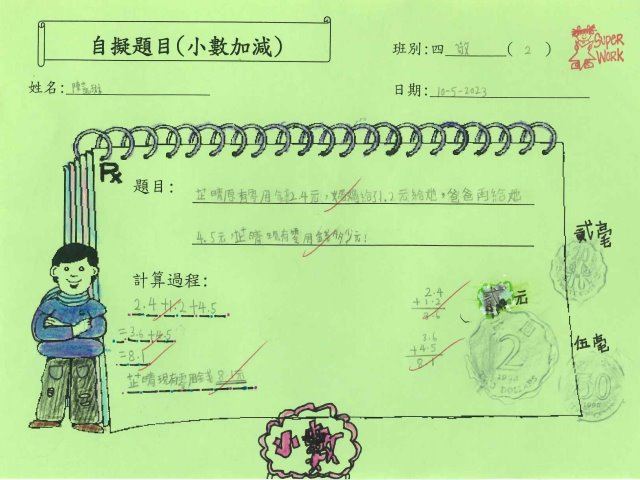 自擬題目(小數加減)
班別:四 敬 ( 2 )
SUPER
WORK
姓名:陳
日期:10-5-2023
題目: 芷晴原有零用錢2.4元,媽媽給了1.2元給她,爸爸再給她
4.5元,芷晴現有零用錢多少元?
貳毫
計算過程:
2.4+1.2+4.5
=3.6+4.5
=8.1
芷晴現有零用錢8.1元
2.4
+1.2
3.6
3.6
+4.5
8.1
元
2
DOLLARS
伍毫
50
小數